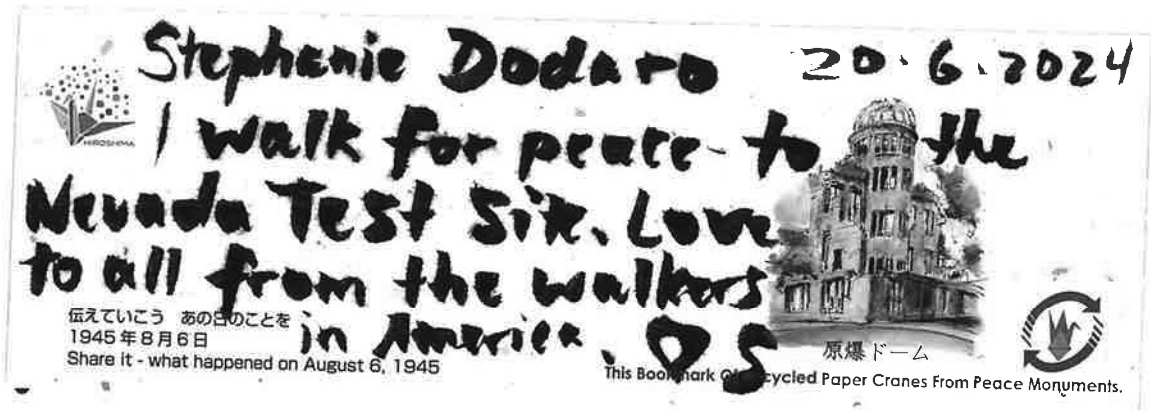 Stephanie Dodaro 20.6.2024
HIROSHIMA
I walk for peace to the
Nevada Test Site. Love
to all from the walkers
in America. ♡ S
伝えていこう あの日のことを
1945年8月6日
Share it - what happened on August 6, 1945
原爆ドーム
This Bookmark Of Recycled Paper Cranes From Peace Monuments.